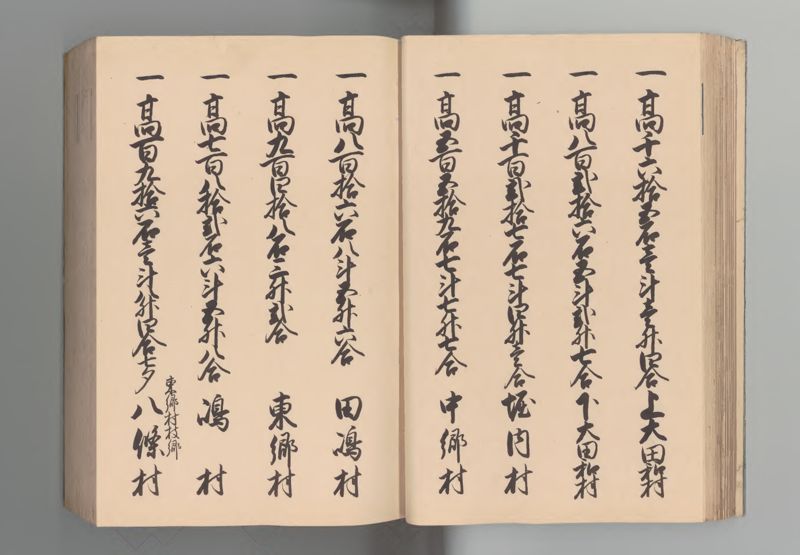 一 高千六拾五石壱斗壱升四合 上大田村
一 高八百弐拾六石五斗弐升七合 下大田村
一 高千百弐拾七石七斗四升壱合 堀内村
一 高五百五拾九石七斗七升七合 中郷村
一 高八百拾六石八斗五升六合 田嶋村
一 高九百四拾八石二升弐合 東郷村
一 高七百八拾弐石六斗五升八合 嶋村
一 高百九拾六石壱斗八升四合七夕 八條村
東郷村枝郷